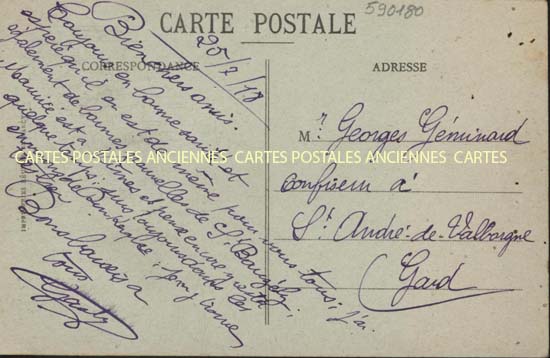 590180
CARTE POSTALE
CORRESPONDANCE
ADRESSE
25/2/18
Bien chers amis.
Toujours en bonne santé et
espère qu'il en est de même pour vous tous; j'ai
également de bonnes nouvelles de St Bauzély,
Maurice est à Nîmes et pense encore y rester
quelque temps;
Bons baisers à
tous
Mr. Georges Géminard
confiseur à
St. André-de-Valborgne
Gard
CARTES POSTALES ANCIENNES CARTES POSTALES ANCIENNES CARTES